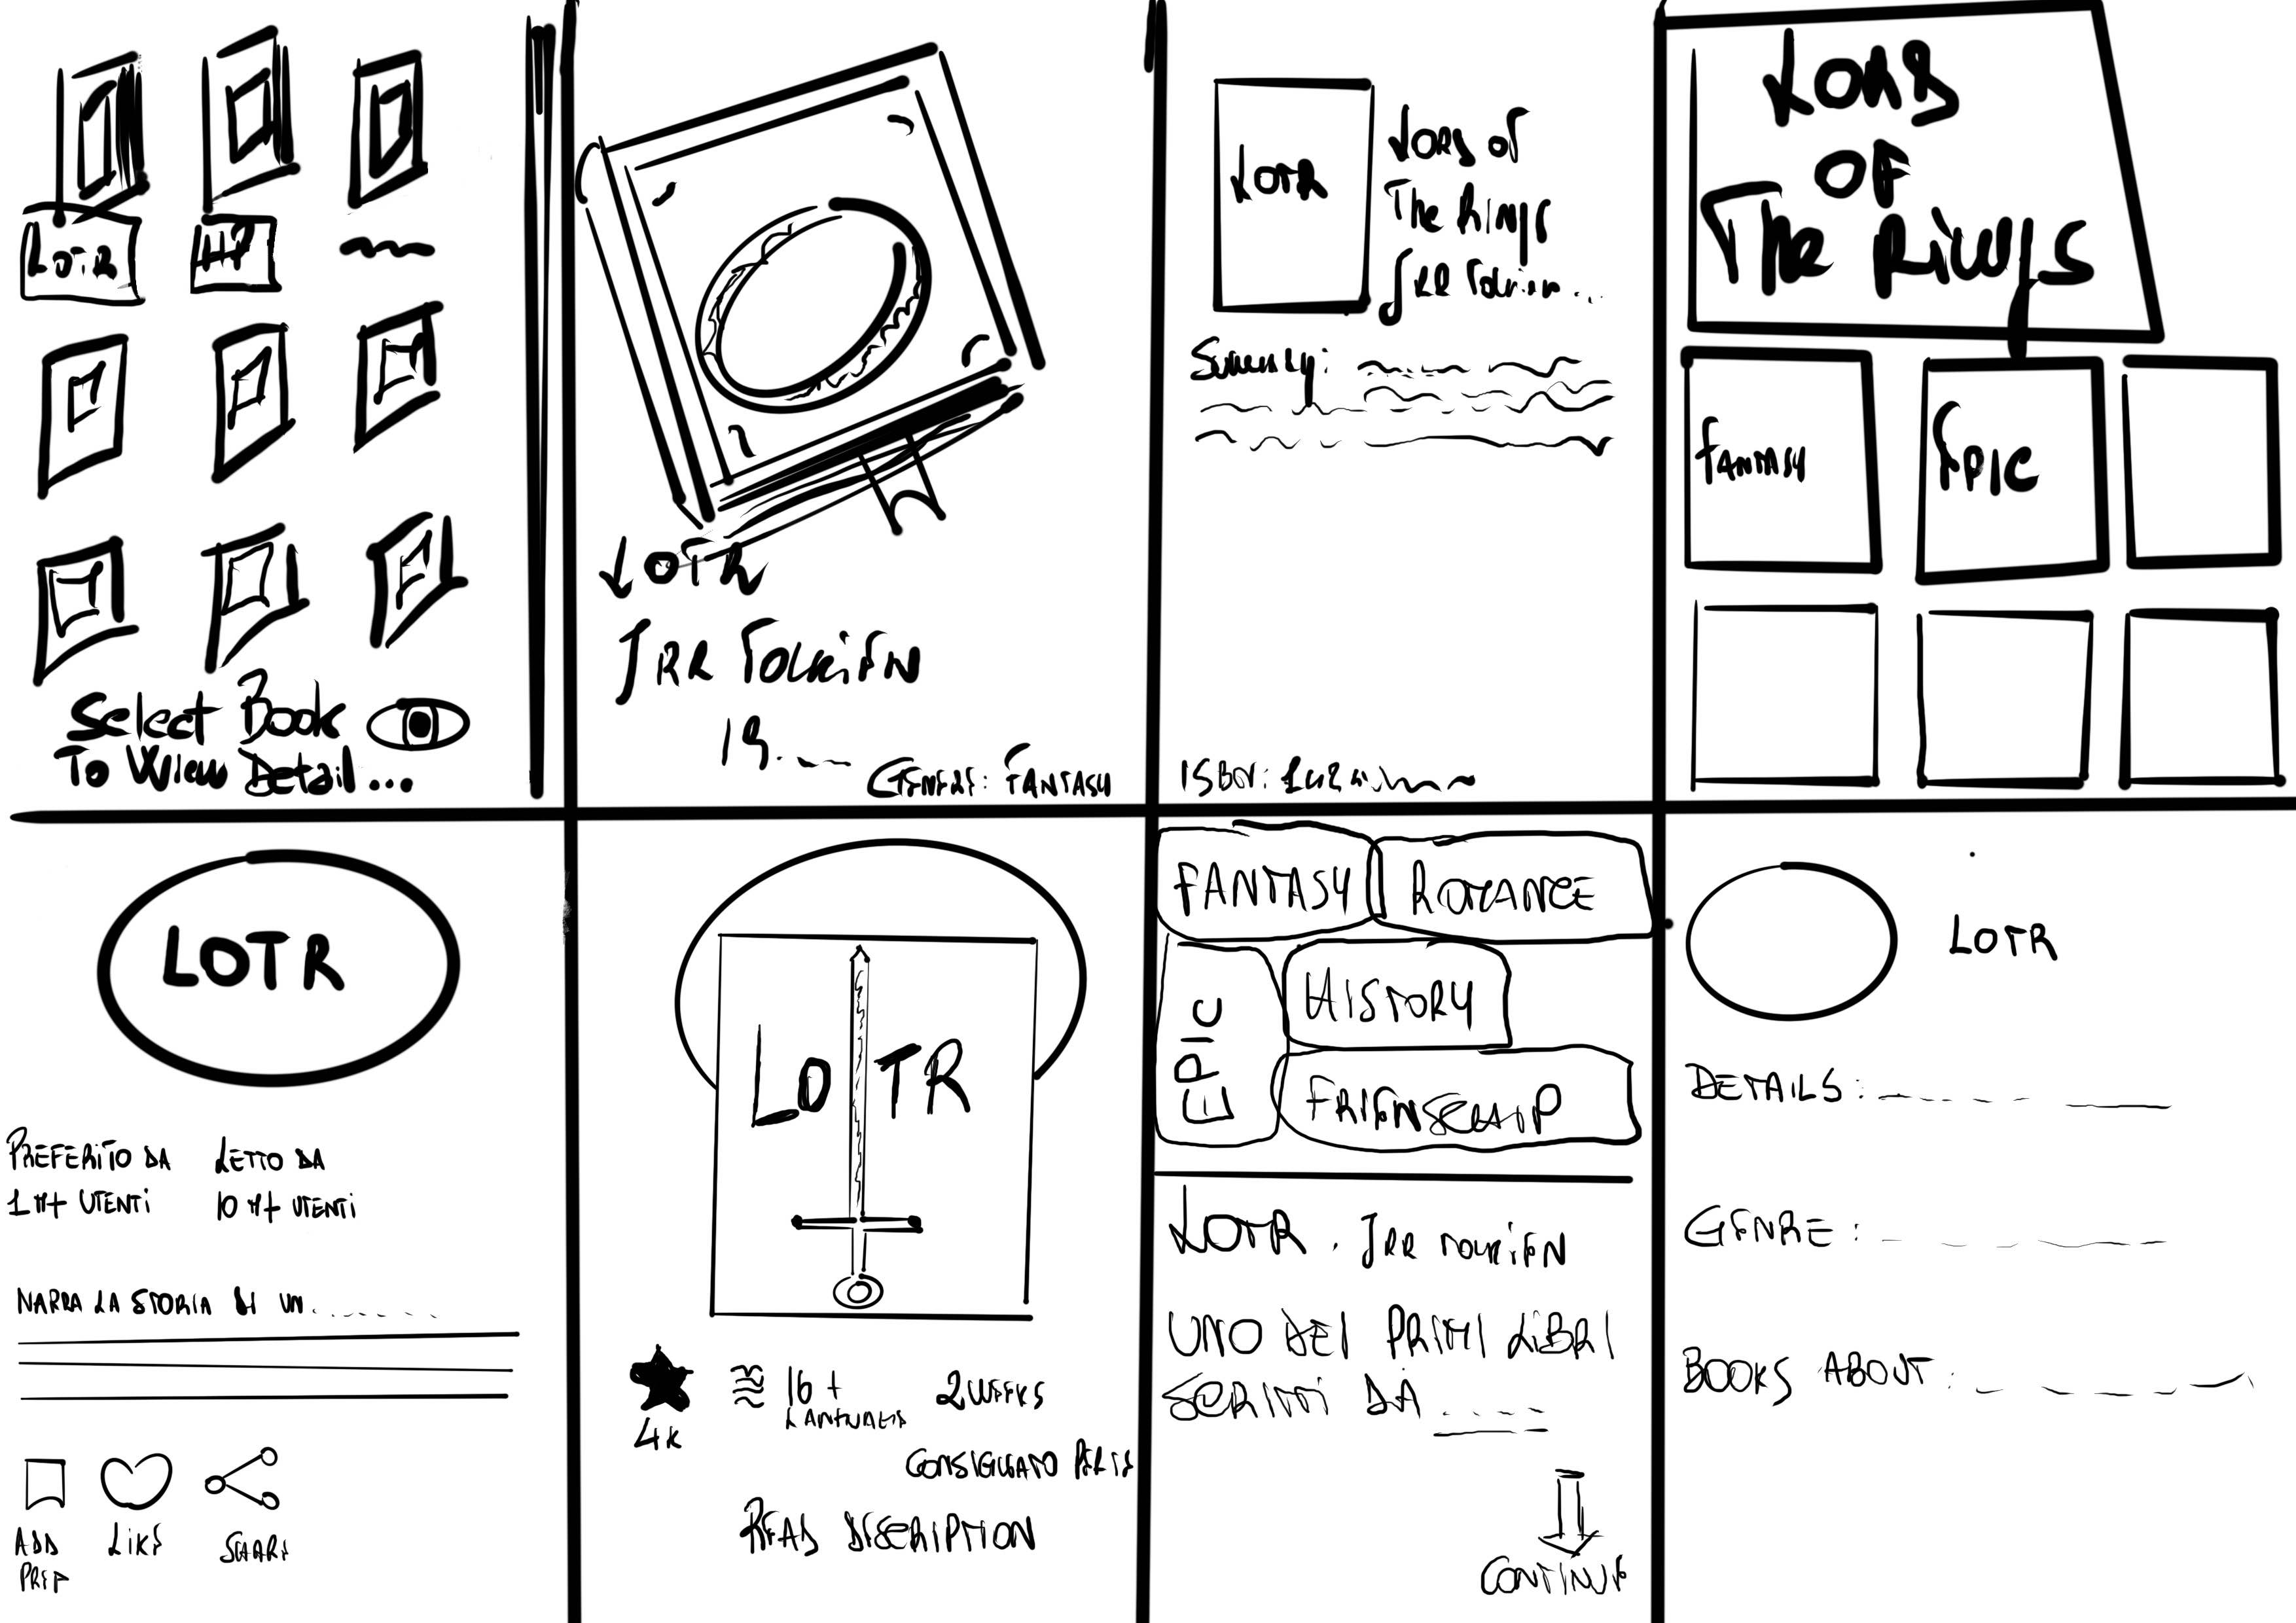 LOTR
HP
Select Book
To View Detail...
LOTR
JRR Tolkien
19.
GENERE: FANTASY
LOTR
LORD OF
The Rings
JRR Tolkien...
Summary:
ISBN:
LORD
OF
The Rings
FANTASY
EPIC
LOTR
PREFERITO DA
1M+ UTENTI
LETTO DA
10M+ UTENTI
NARRA LA STORIA DI UN......
ADD
PREF
LIKE
SHARE
LOTR
4K
16+
LANGUAGES
2 WEEKS
CONSIGLIATO
READ DESCRIPTION
FANTASY
ROMANCE
EPIC
HISTORY
FRIENSCHIP
LOTR. JRR TOLKIEN
UNO DEI PRIMI LIBRI
SCRITTI DA ....
CONTINUE
LOTR
DETAILS:
GENRE:
BOOKS ABOUT: